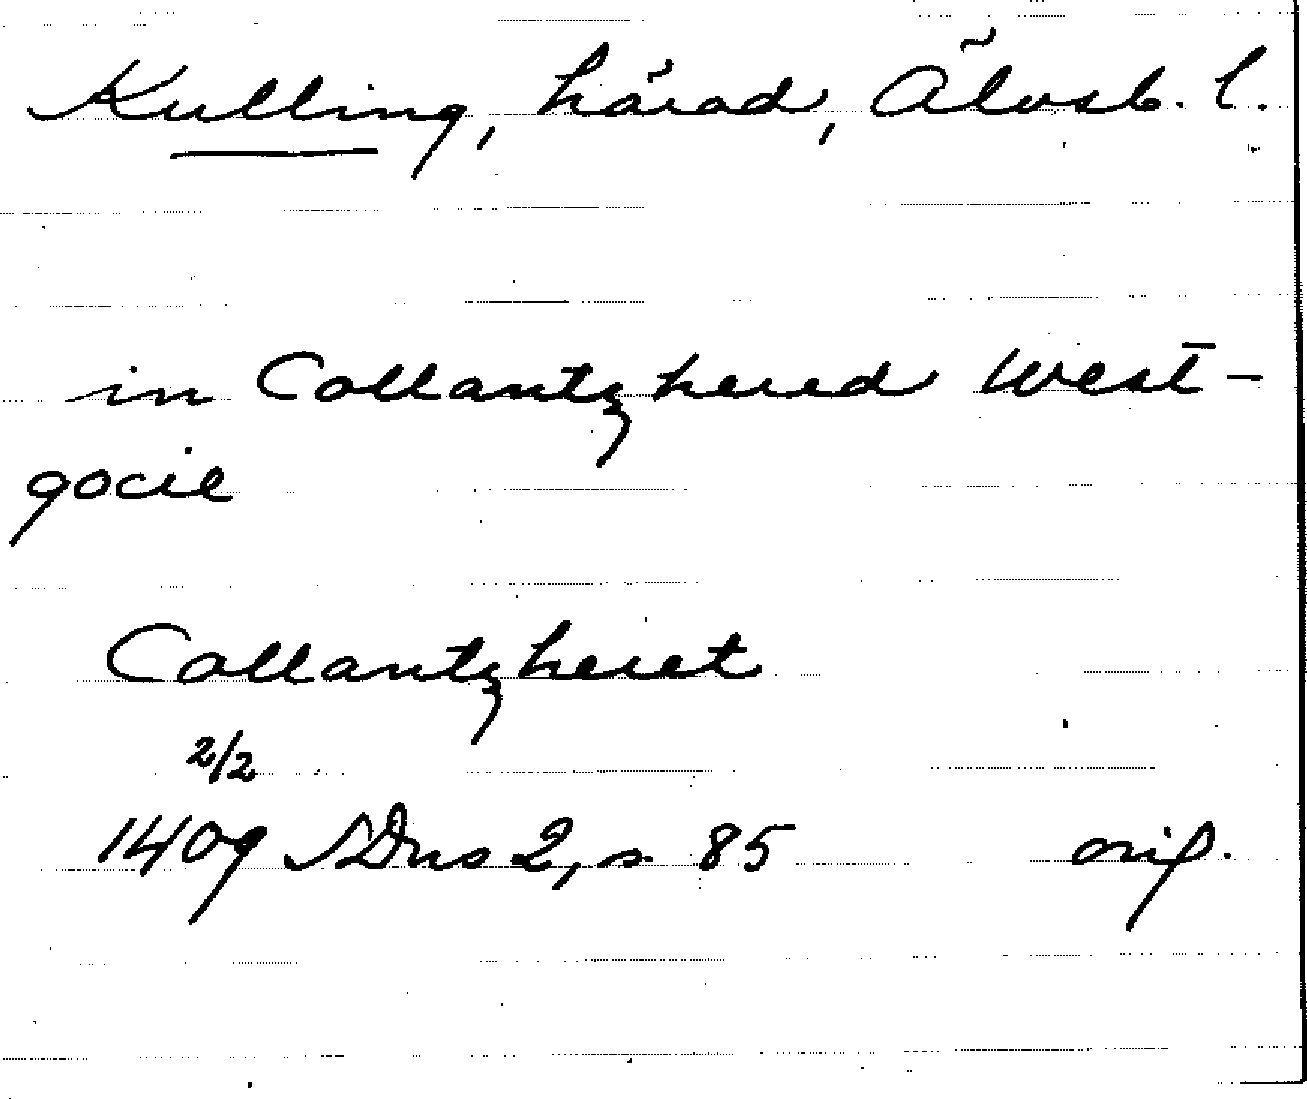 Kulling, härad, Älvsb. l.
in Collantzhered West-
gocie
Collantzheret
2/2
1409 SDns 2, s. 85 orig.